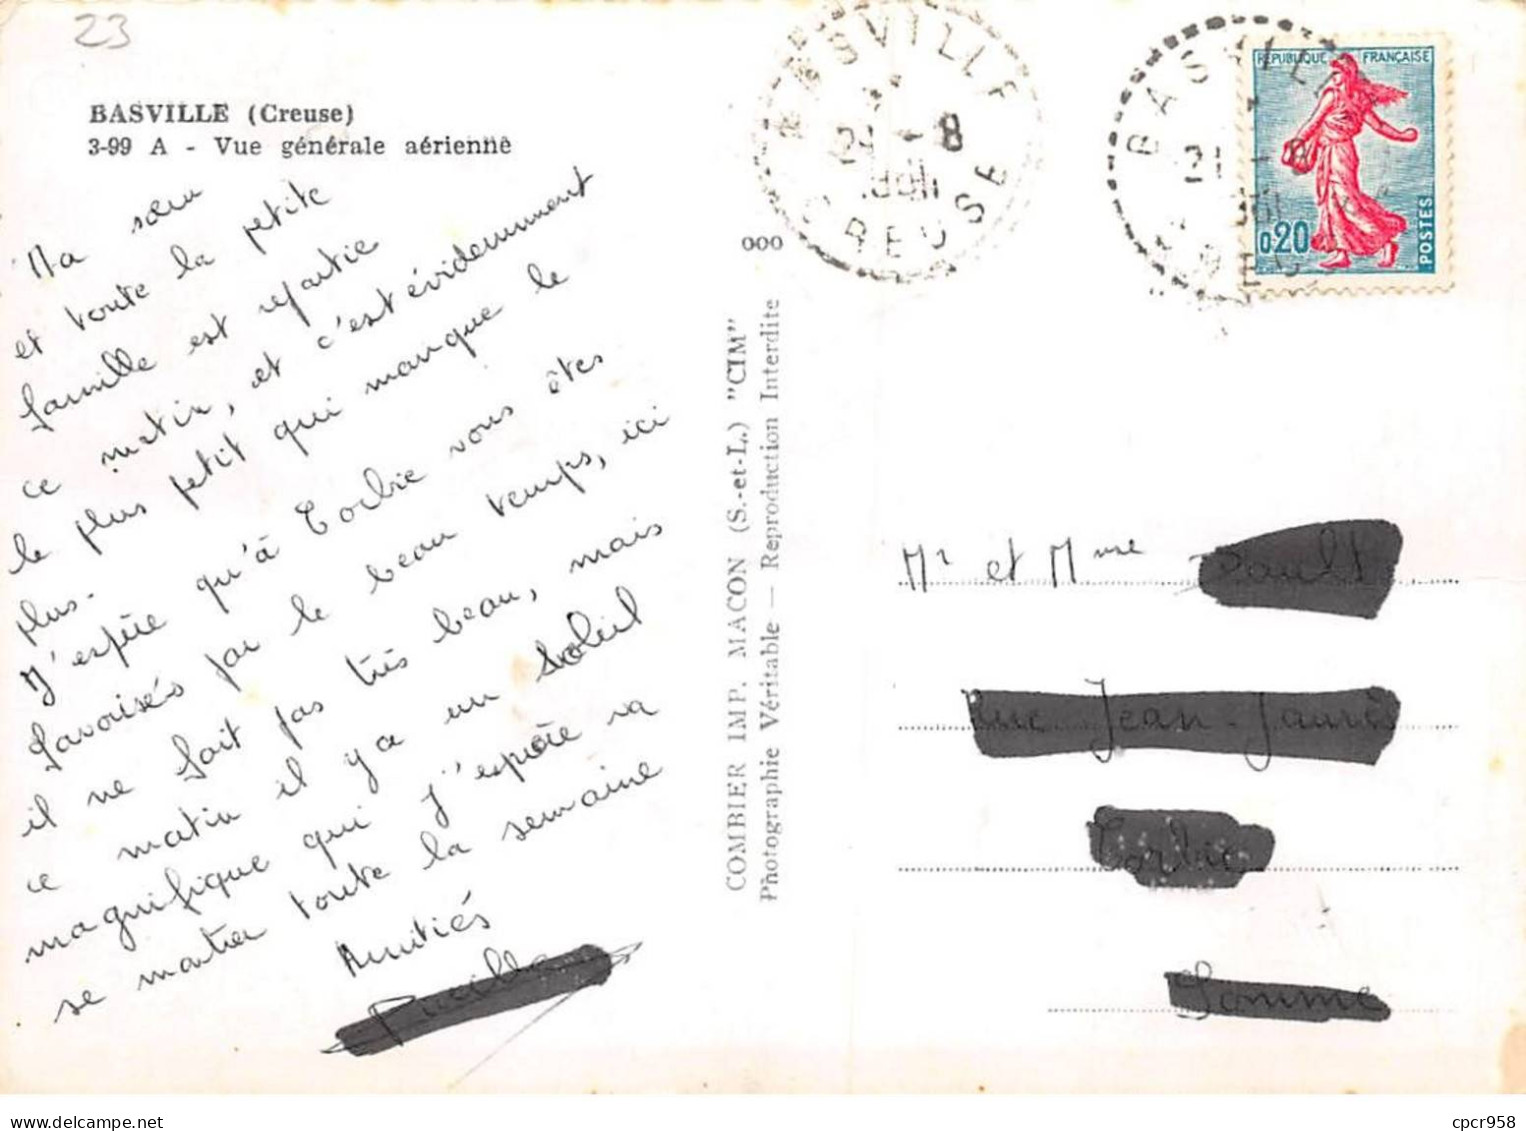 23
BASVILLE (Creuse)
3-99 A - Vue générale aérienne
Ma sœur
et toute la petite
famille est repartie
ce matin, et c'est évidemment
le plus petit qui manque le
plus.
J'espère qu'à Corbie vous êtes
favorisés par le beau temps, ici
il ne fait pas très beau, mais
ce matin il y a un soleil
magnifique qui j'espère va
se montrer toute la semaine
Amitiés
000
COMBIER IMP. MACON (S.-et-L.) "CIM"
Photographie Véritable — Reproduction Interdite
BASVILLE
21 - 8
CREUSE
BASVILLE
21 - 8
REPUBLIQUE FRANÇAISE
0,20
POSTES
Mr et Mme
Rue Jean-Jaurès
Corbie
Somme
cpcr958